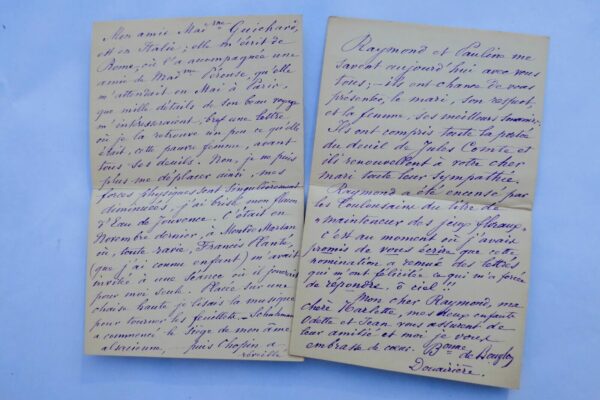 Mon amie Mai rme Guichard,
est en Italie ; elle m'écrit de
Rome, où l'a accompagnée une
amie de Mai me qu'elle
m'attendait en Mai à Paris,
que mille détails de son beau voyage
m'intéresseraient, bref une lettre
où je la retrouve un peu ce qu'elle
était, cette pauvre femme, avant
tous ses deuils. Non, je ne puis
plus me déplacer ainsi, mes
forces physiques sont singulièrement
diminuées, j'ai brisé mon flacon
d'Eau de Jouvence. C'était en
Novembre dernier, à Mont de Marsan
où, toute ravie, Francis Planté,
(que j'ai connu enfant) m'avait
invitée à une séance où il jouerait
pour moi seule. Placée sur une
chaise haute je lisais la musique
pour tourner les feuillets. Schumann
a commencé le siège de mon âme
alsacienne, puis Chopin a
réveillé
Raymond et Pauline me
savent aujourd'hui avec vous
tous, – ils ont chance de vous
présenter, le mari, son respect,
et la femme, ses meilleurs souvenirs.
Ils ont compris toute la portée
du deuil de Jules Comte et
ils renouvellent à votre cher
mari toute leur sympathie.
Raymond a été encensé par
les Toulousains du titre de
"mainteneur des jeux floraux"
c'est au moment où j'avais
promis de vous écrire que cette
nomination a remué des lettrés
qui m'ont félicitée ce qui m'a forcée
de répondre, ô ciel !!!
Mon cher Raymond, ma
chère Harlette, mes deux enfants
Odette et Jean vous assurent de
leur amitié et moi je vous
embrasse de cœur. Bonne
de
Douairière.